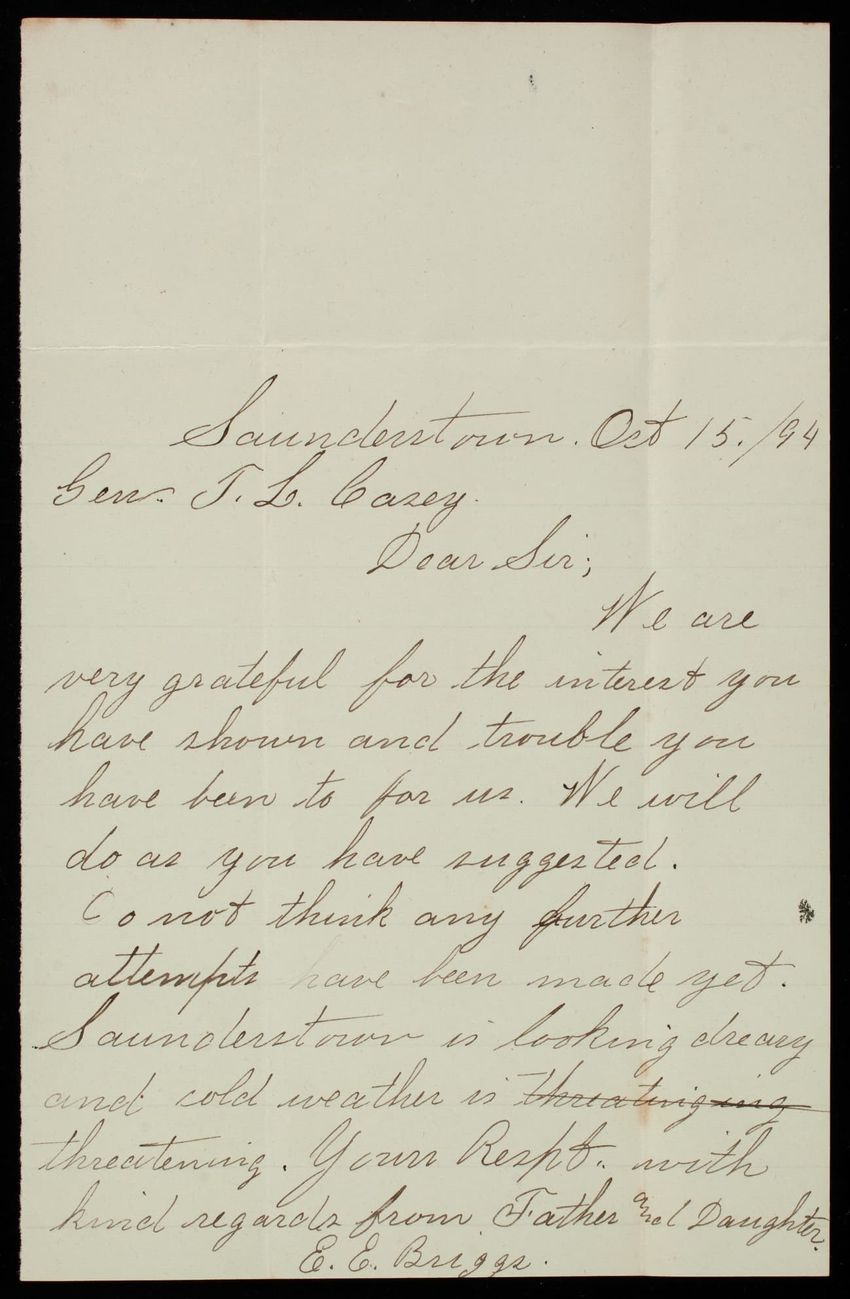 Saunderstown. Oct 15./94
Gen. T. L. Casey.
Dear Sir;
We are
very grateful for the interest you
have shown and trouble you
have been to for us. We will
do as you have suggested.
Do not think any further
attempts have been made yet.
Saunderstown is looking dreary
and cold weather is
threatening. Yours Respt. with
kind regards from Father and Daughter.
E. E. Briggs.